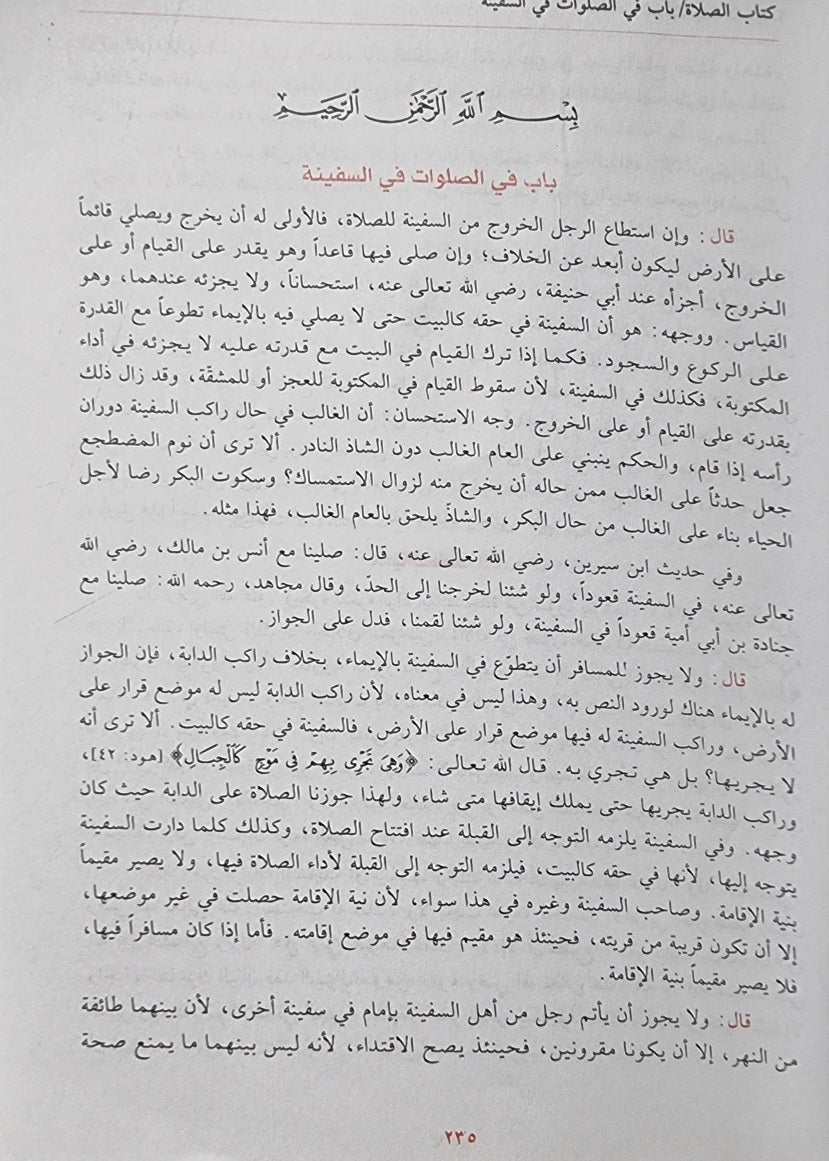 كتاب الصلاة/ باب في الصلوات في السفينة
بِسْمِ اللَّهِ الرَّحْمَٰنِ الرَّحِيمِ
باب في الصلوات في السفينة
قال: وإن استطاع الرجل الخروج من السفينة للصلاة، فالأولى له أن يخرج ويصلي قائماً
على الأرض ليكون أبعد عن الخلاف؛ وإن صلى فيها قاعداً وهو يقدر على القيام أو على
الخروج، أجزأه عند أبي حنيفة، رضي الله تعالى عنه، استحساناً، ولا يجزئه عندهما، وهو
القياس. ووجهه: هو أن السفينة في حقه كالبيت حتى لا يصلي فيه بالإيماء تطوعاً مع القدرة
على الركوع والسجود. فكما إذا ترك القيام في البيت مع قدرته عليه لا يجزئه في أداء
المكتوبة، فكذلك في السفينة، لأن سقوط القيام في المكتوبة للعجز أو للمشقّة، وقد زال ذلك
بقدرته على القيام أو على الخروج. وجه الاستحسان: أن الغالب في حال راكب السفينة دوران
رأسه إذا قام، والحكم ينبني على العام الغالب دون الشاذ النادر. ألا ترى أن نوم المضطجع
جعل حدثاً على الغالب ممن حاله أن يخرج منه لزوال الاستمساك؟ وسكوت البكر رضا لأجل
الحياء بناء على الغالب من حال البكر، والشاذّ يلحق بالعام الغالب، فهذا مثله.
وفي حديث ابن سيرين، رضي الله تعالى عنه، قال: صلينا مع أنس بن مالك، رضي الله
تعالى عنه، في السفينة قعوداً، ولو شئنا لخرجنا إلى الحدّ، وقال مجاهد، رحمه الله: صلينا مع
جنادة بن أبي أمية قعوداً في السفينة، ولو شئنا لقمنا، فدل على الجواز.
قال: ولا يجوز للمسافر أن يتطوّع في السفينة بالإيماء، بخلاف راكب الدابة، فإن الجواز
له بالإيماء هناك لورود النص به، وهذا ليس في معناه، لأن راكب الدابة ليس له موضع قرار على
الأرض، وراكب السفينة له فيها موضع قرار على الأرض، فالسفينة في حقه كالبيت. ألا ترى أنه
لا يجريها؟ بل هي تجري به. قال الله تعالى: ﴿وَهِىَ تَجْرِى بِهِمْ فِى مَوْجٍ كَٱلْجِبَالِ﴾ [هود: ٤٢]،
وراكب الدابة يجريها حتى يملك إيقافها متى شاء، ولهذا جوزنا الصلاة على الدابة حيث كان
وجهه. وفي السفينة يلزمه التوجه إلى القبلة عند افتتاح الصلاة، وكذلك كلما دارت السفينة
يتوجه إليها، لأنها في حقه كالبيت، فيلزمه التوجه إلى القبلة لأداء الصلاة فيها، ولا يصير مقيماً
بنية الإقامة. وصاحب السفينة وغيره في هذا سواء، لأن نية الإقامة حصلت في غير موضعها،
إلا أن تكون قريبة من قريته، فحينئذ هو مقيم فيها في موضع إقامته. فأما إذا كان مسافراً فيها،
فلا يصير مقيماً بنية الإقامة.
قال: ولا يجوز أن يأتم رجل من أهل السفينة بإمام في سفينة أخرى، لأن بينهما طائفة
من النهر، إلا أن يكونا مقرونين، فحينئذ يصح الاقتداء، لأنه ليس بينهما ما يمنع صحة
٢٣٥